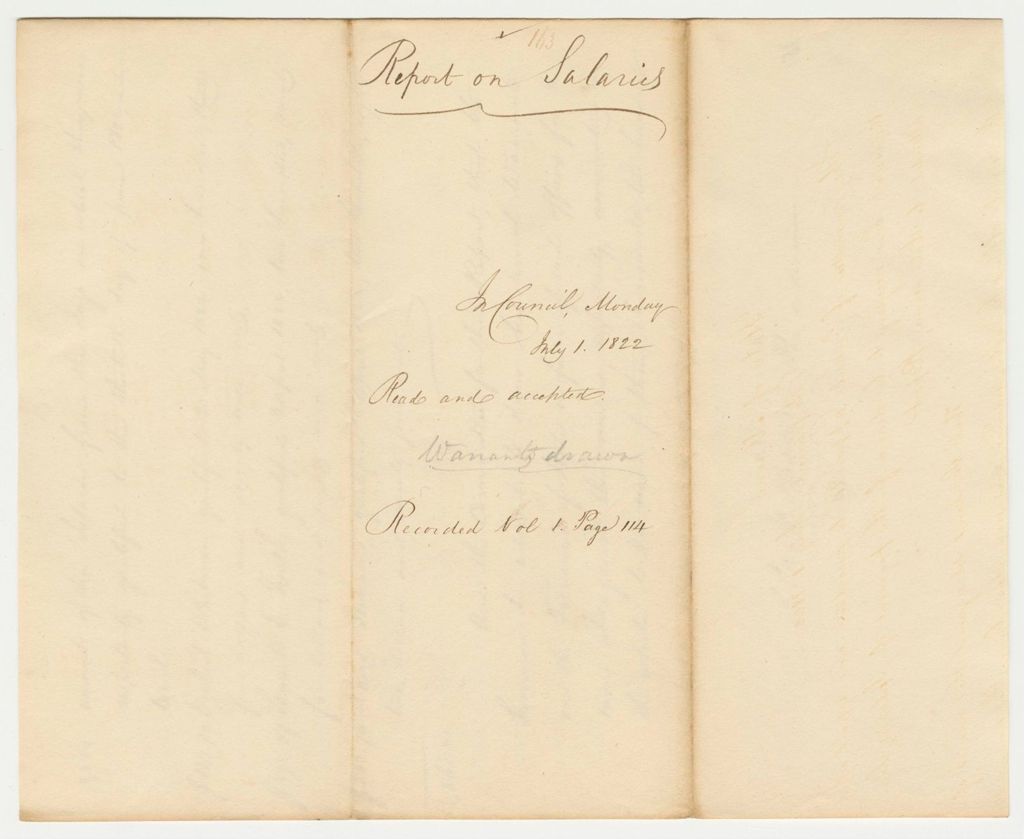 143
Report on Salaries
In Council, Monday
July 1. 1822
Read and accepted.
Warrants drawn
Recorded Vol 1. Page 114